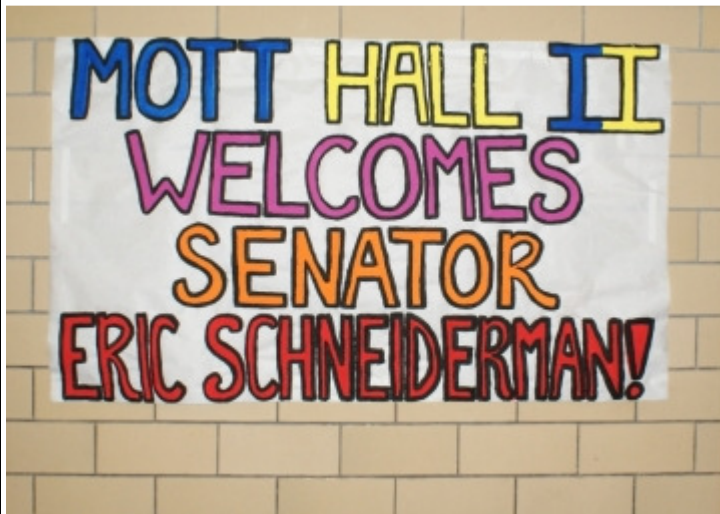 MOTT HALL II
WELCOMES
SENATOR
ERIC SCHNEIDERMAN!